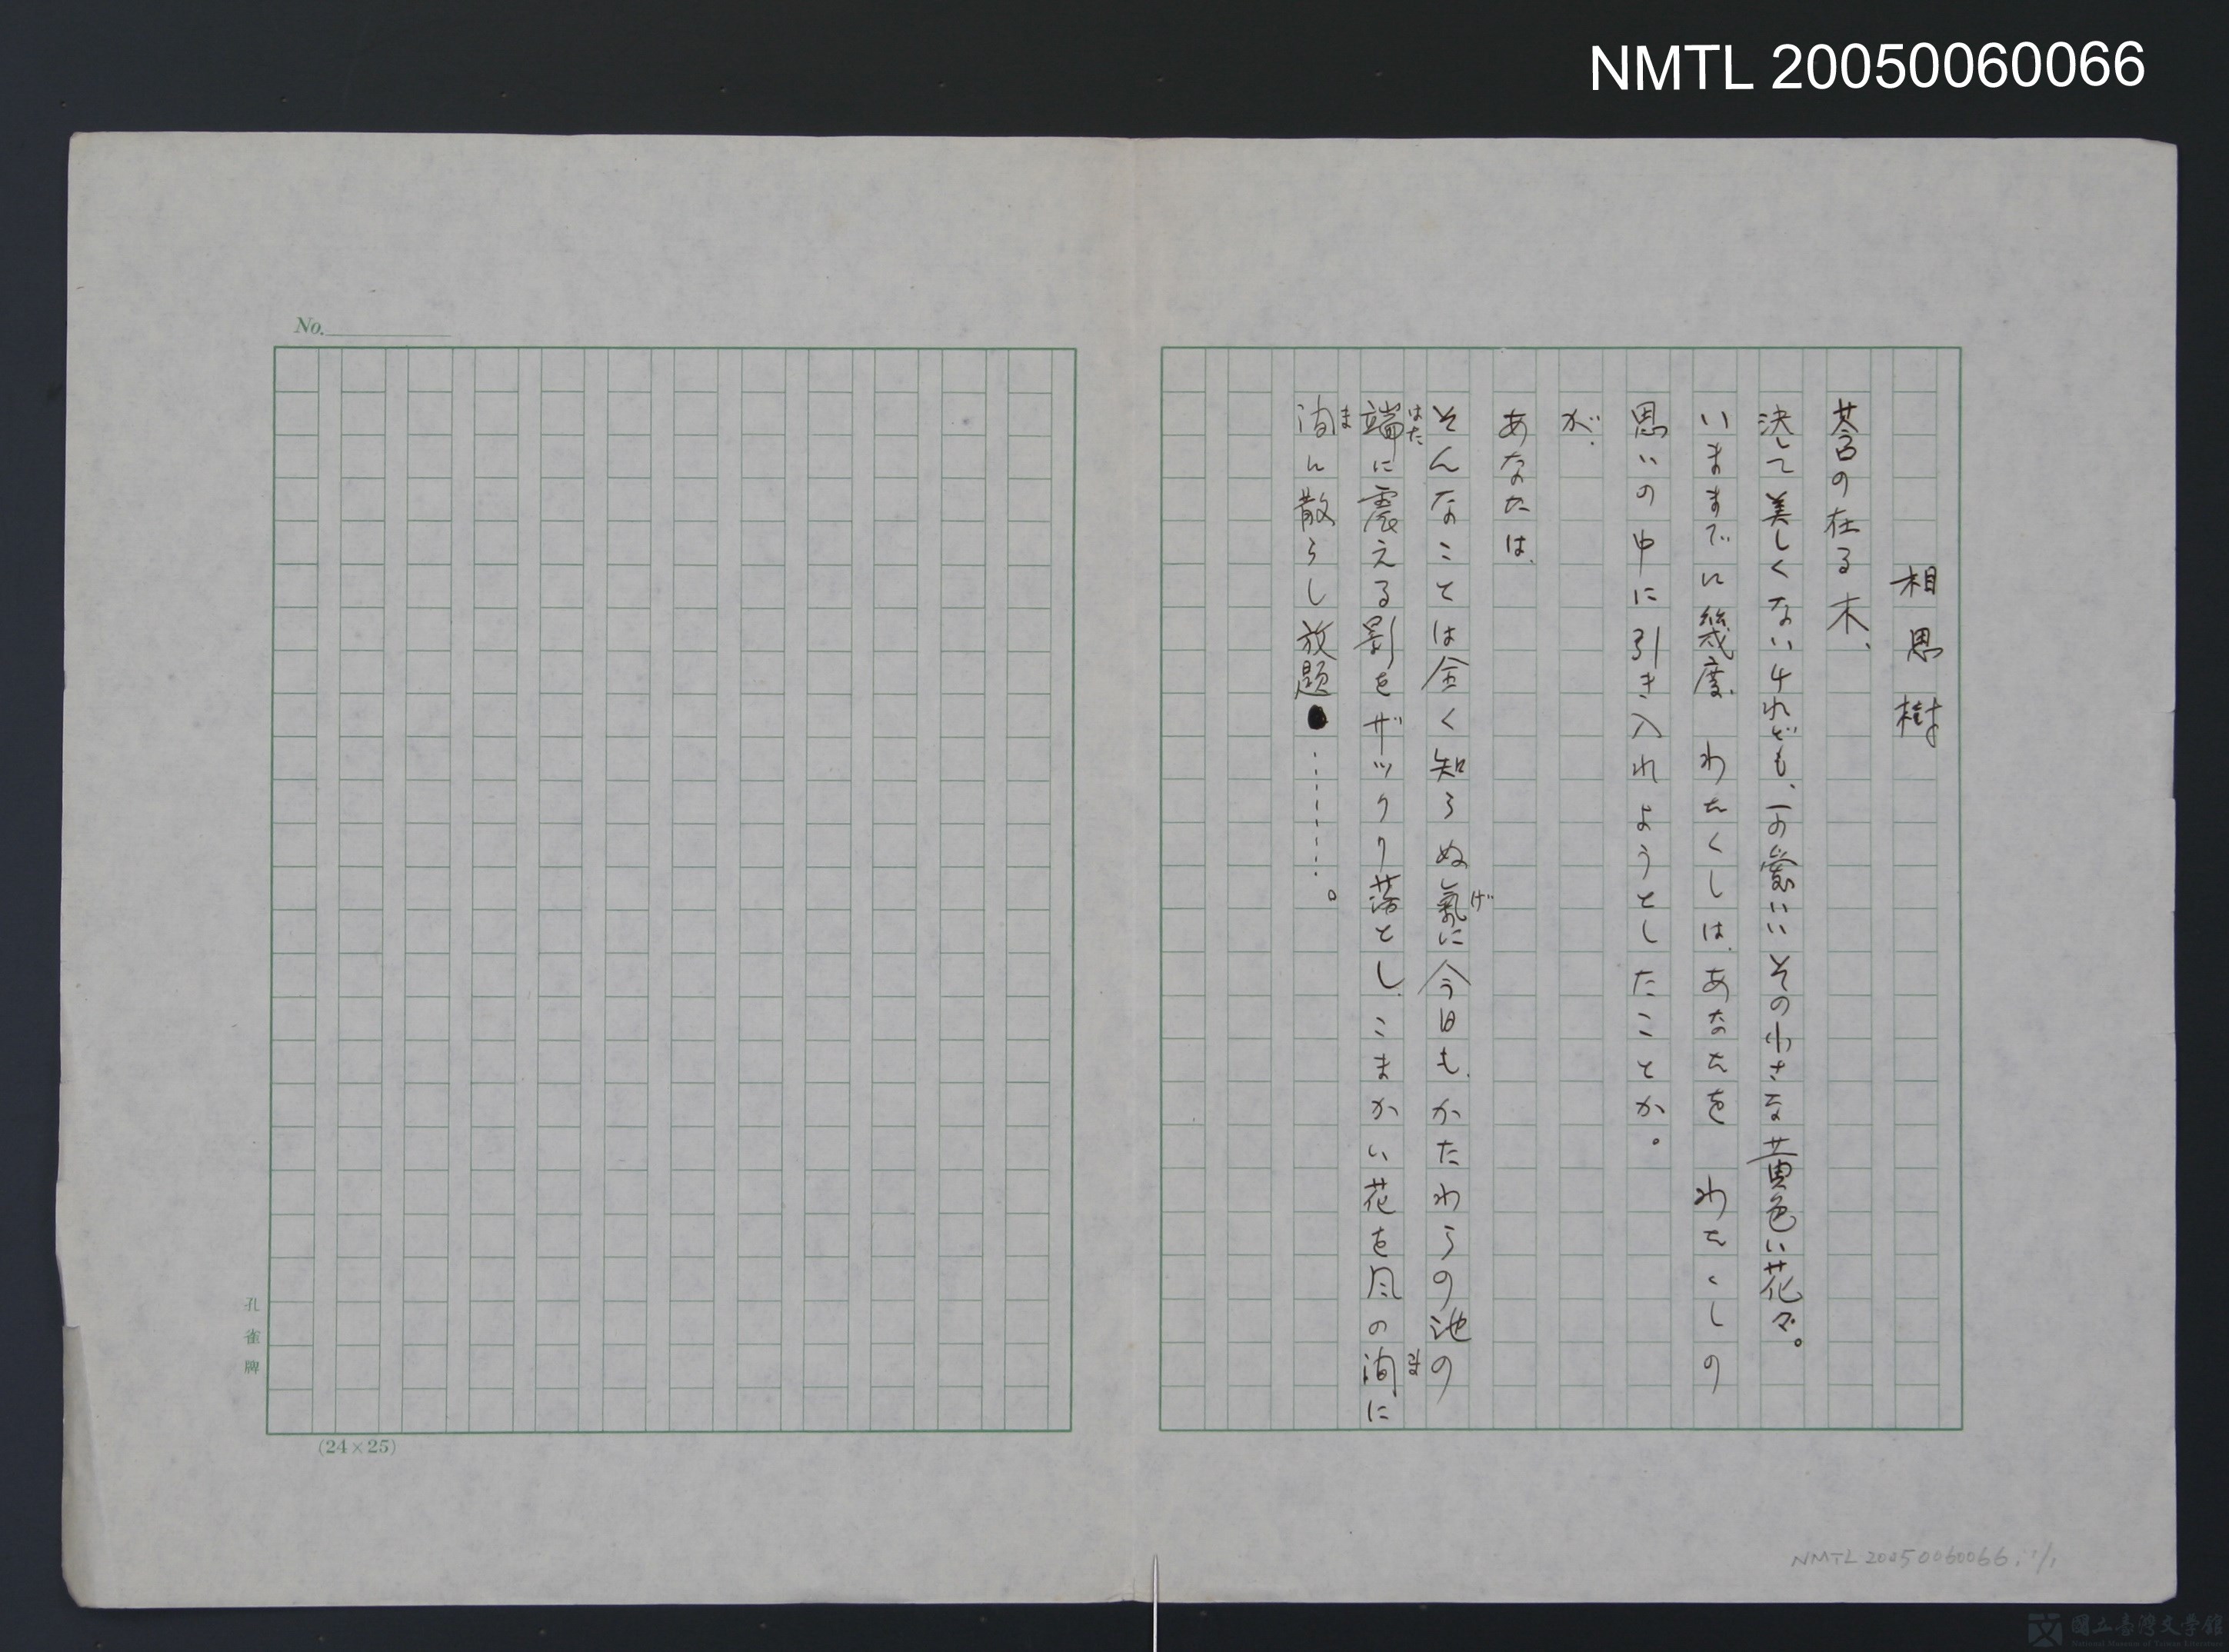 NMTL 20050060066
相思樹
答の在る木、
決して美しくないけれども、可愛いいその小さな黄色い花々。
いままでに幾度、わたくしは、あなたを わたくしの
思いの中に引き入れようとしたことか。
が、
あなたは、
そんなことは全く知らぬ氣に今日も、かたわらの池の
げ
端に震える影をザックリ落とし、こまかい花を風の間に
はた
まま
間に散らし放題●………。
ま
No.
孔雀牌
(24×25)
NMTL 20050060066, 1/1
國立臺灣文學館
National Museum of Taiwan Literature